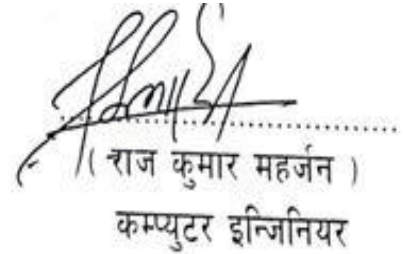 ( राज कुमार महर्जन )
कम्प्युटर इन्जिनियर